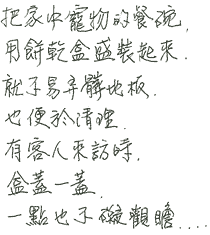 把家中寵物的餐碗,
用餅乾盒盛裝起來.
就不易弄髒地板.
也便於清理.
有客人來訪時,
盒蓋一蓋.
一點也不礙觀瞻....